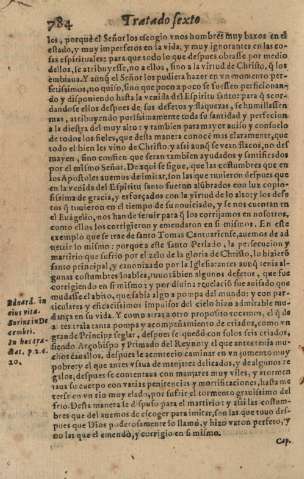 784 Tratado sexto
les, porque el Señor los escogio vnos hombrẽs muy baxos en el
estado, y muy imperfetos en la vida, y muy ignorantes en las co-
sas espirituales: para que todo lo que despues obrasse por medio
dellos, se atribuyesse, no a ellos, sino a la virtud de Christo, q̃ los
embiaua. Y aunq̃ el Señor los pudiera hazer en vn momento per-
fetissimos, no quiso, sino que poco a poco se fuessen perficionan-
do y disponiendo hasta la venida del Espiritu santo: para q̃ acor-
dandose ellos despues de sus defetos y flaquezas, se humillassen
mas, atribuyendo purissimamente toda su santidad y perfecion
a la diestra del muy alto: y tambien para mayor auiso y consuelo
de todos los fieles, que desta manera conocemos claramente, que
todo el bien les vino de Christo, y assi aunq̃ se vean flacos, no des
mayen, sino confien que seran tambien ayudados y santificados
por el mismo Señor. De aqui se sigue, que las costumbres que en
los Apostoles auemos de imitar, son las que tuuieron despues que
en la venida del Espiritu santo fueron alũbrados con luz copio-
sissima de gracia, y esforçados con la virtud de lo alto: y los defe-
tos q̃ tuuieron en el tiempo de su nouiciado, y se nos cuentan en
el Euãgelio, nos han de seruir para q̃ los corrijamos en nosotros,
como ellos los corrigieron y emendaron en si mismos. En este
exemplo que se trae de santo Tomas Cantuariense, auemos de ad
uertir lo mismo: porque a este santo Perlado, la persecucion y
martirio que sufrio por el zelo de la gloria de Christo, lo hizierõ
santo principal, y canonizado por la Iglesia: antes aunq̃ tenia al-
gunas costumbres loables, tuuo tãbien algunos defetos, que fue
corrigiendo en si mismo: y por diuina reuelaciõ fue auisado que
mudasse el abito, que sabia algo a pompa del mundo: y con par-
ticulares y eficacissimos impulsos del cielo hizo admirable mu-
dança en su vida. Y como atras a otro proposito tocamos, el q̃ de
antes traia tanta pompa y acompañamiento de criados, como vn
grande Principe seglar, despues se quedò con solos seis criados,
siendo Arçobispo y Primado del Reyno: y el que antes tenia mu-
chos cauallos, despues le acontecio caminar en vn jumento muy
pobre: y el que antes vsaua de manjares delicados, y de algunos re
galos, despues se contentaua con manjares muy viles, y atormen
taua su cuerpo con varias penitencias y mortificaciones, hasta me
terse en vn rio muy elado, por sufrir el tormento grauissimo del
frio. Desta manera se dispuso para el martirio: y assi las costum-
bres que del auemos de escoger para imitar, son las que tuuo des-
pues que Dios poderosamente lo llamò, y hizo varon perfeto, y
no las que el emendò, y corrigio en si mismo.
Cap.